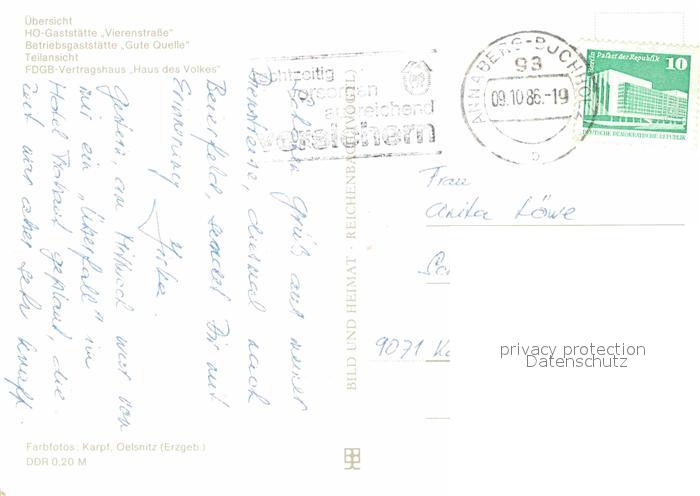 Übersicht
HO-Gaststätte „Vierenstraße"
Betriebsgaststätte „Gute Quelle"
Teilansicht
FDGB-Vertragshaus „Haus des Volkes"
Rechtzeitig
vorsorgen
ausreichend
versichern
ANNABERG-BUCHHOLZ
93
09.10.86.-19
b
Palast der Republik
10
DEUTSCHE DEMOKRATISCHE REPUBLIK
Gruß aus meiner
Dienstreise, diesmal nach
Beierfeld, sendet Dir mit
Erinnerung
Gestern, am Mittwoch war von
mir ein „Überfall" im
Hotel geplant, die
Zeit war aber sehr knapp.
BILD UND HEIMAT · REICHENBACH (VOGTL)
Frau
Anita Löwe
9071 Ka
privacy protection
Datenschutz
Farbfotos: Karpf, Oelsnitz (Erzgeb.)
DDR 0,20 M